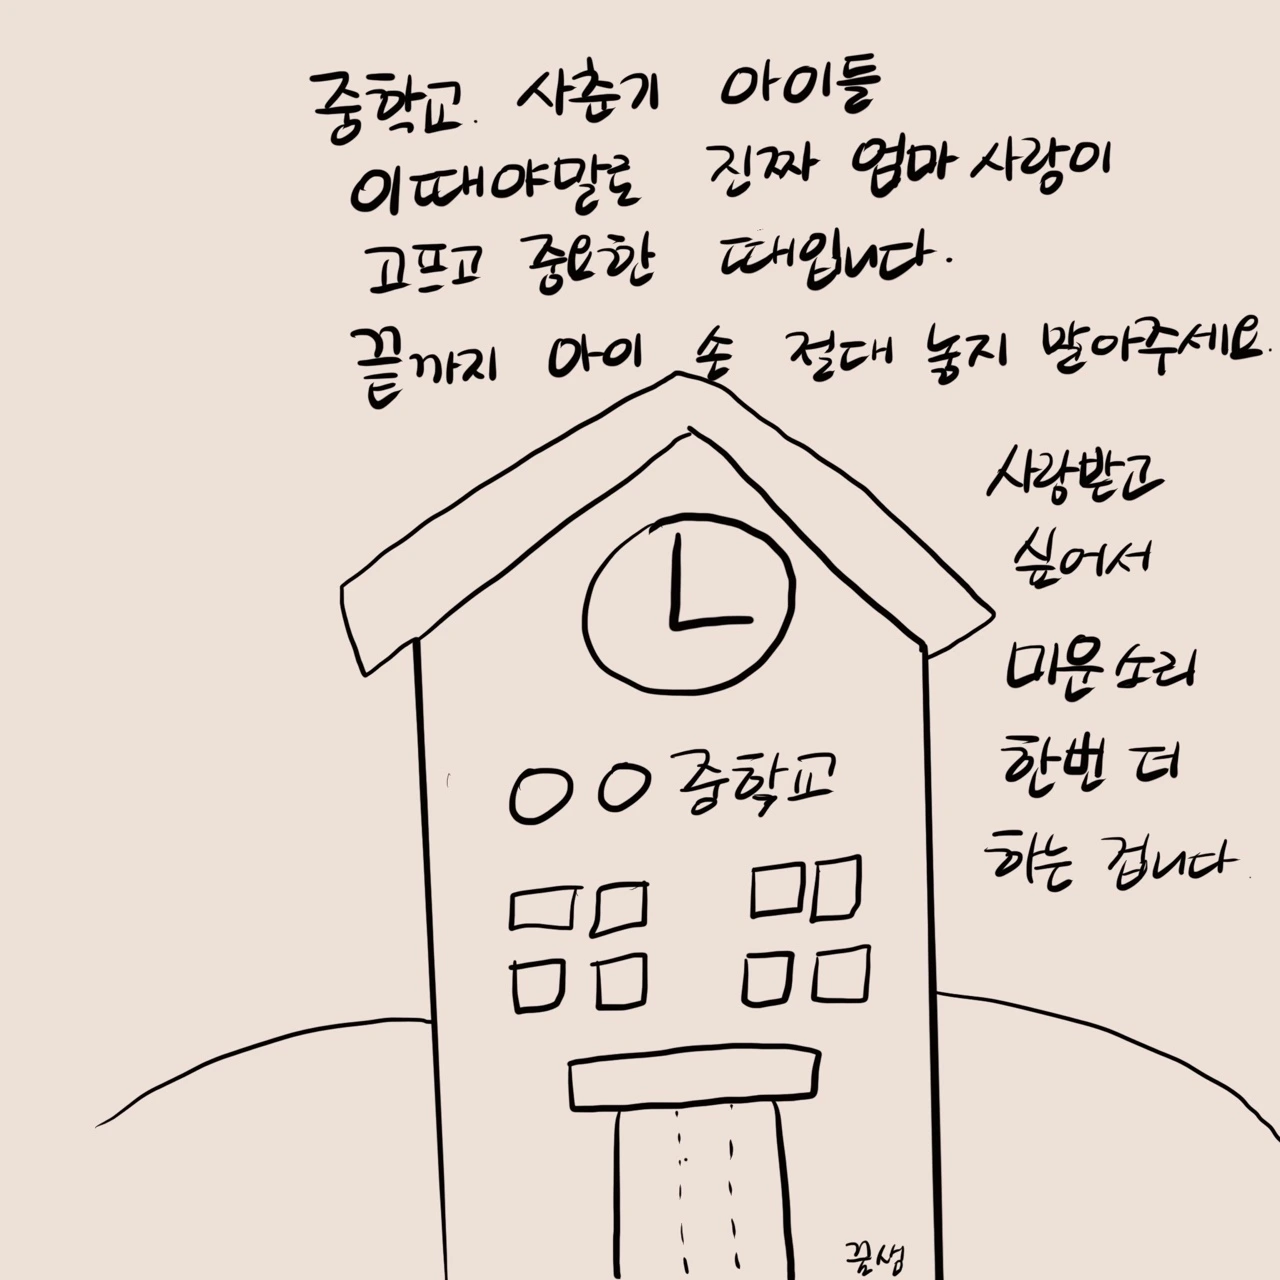 중학교. 사춘기 아이들
이때야말로 진짜 엄마 사랑이
고프고 중요한 때입니다.
끝까지 아이 손 절대 놓지 말아주세요.
사랑받고
싶어서
미운 소리
한번 더
하는 겁니다.
○○중학교
꿈샘